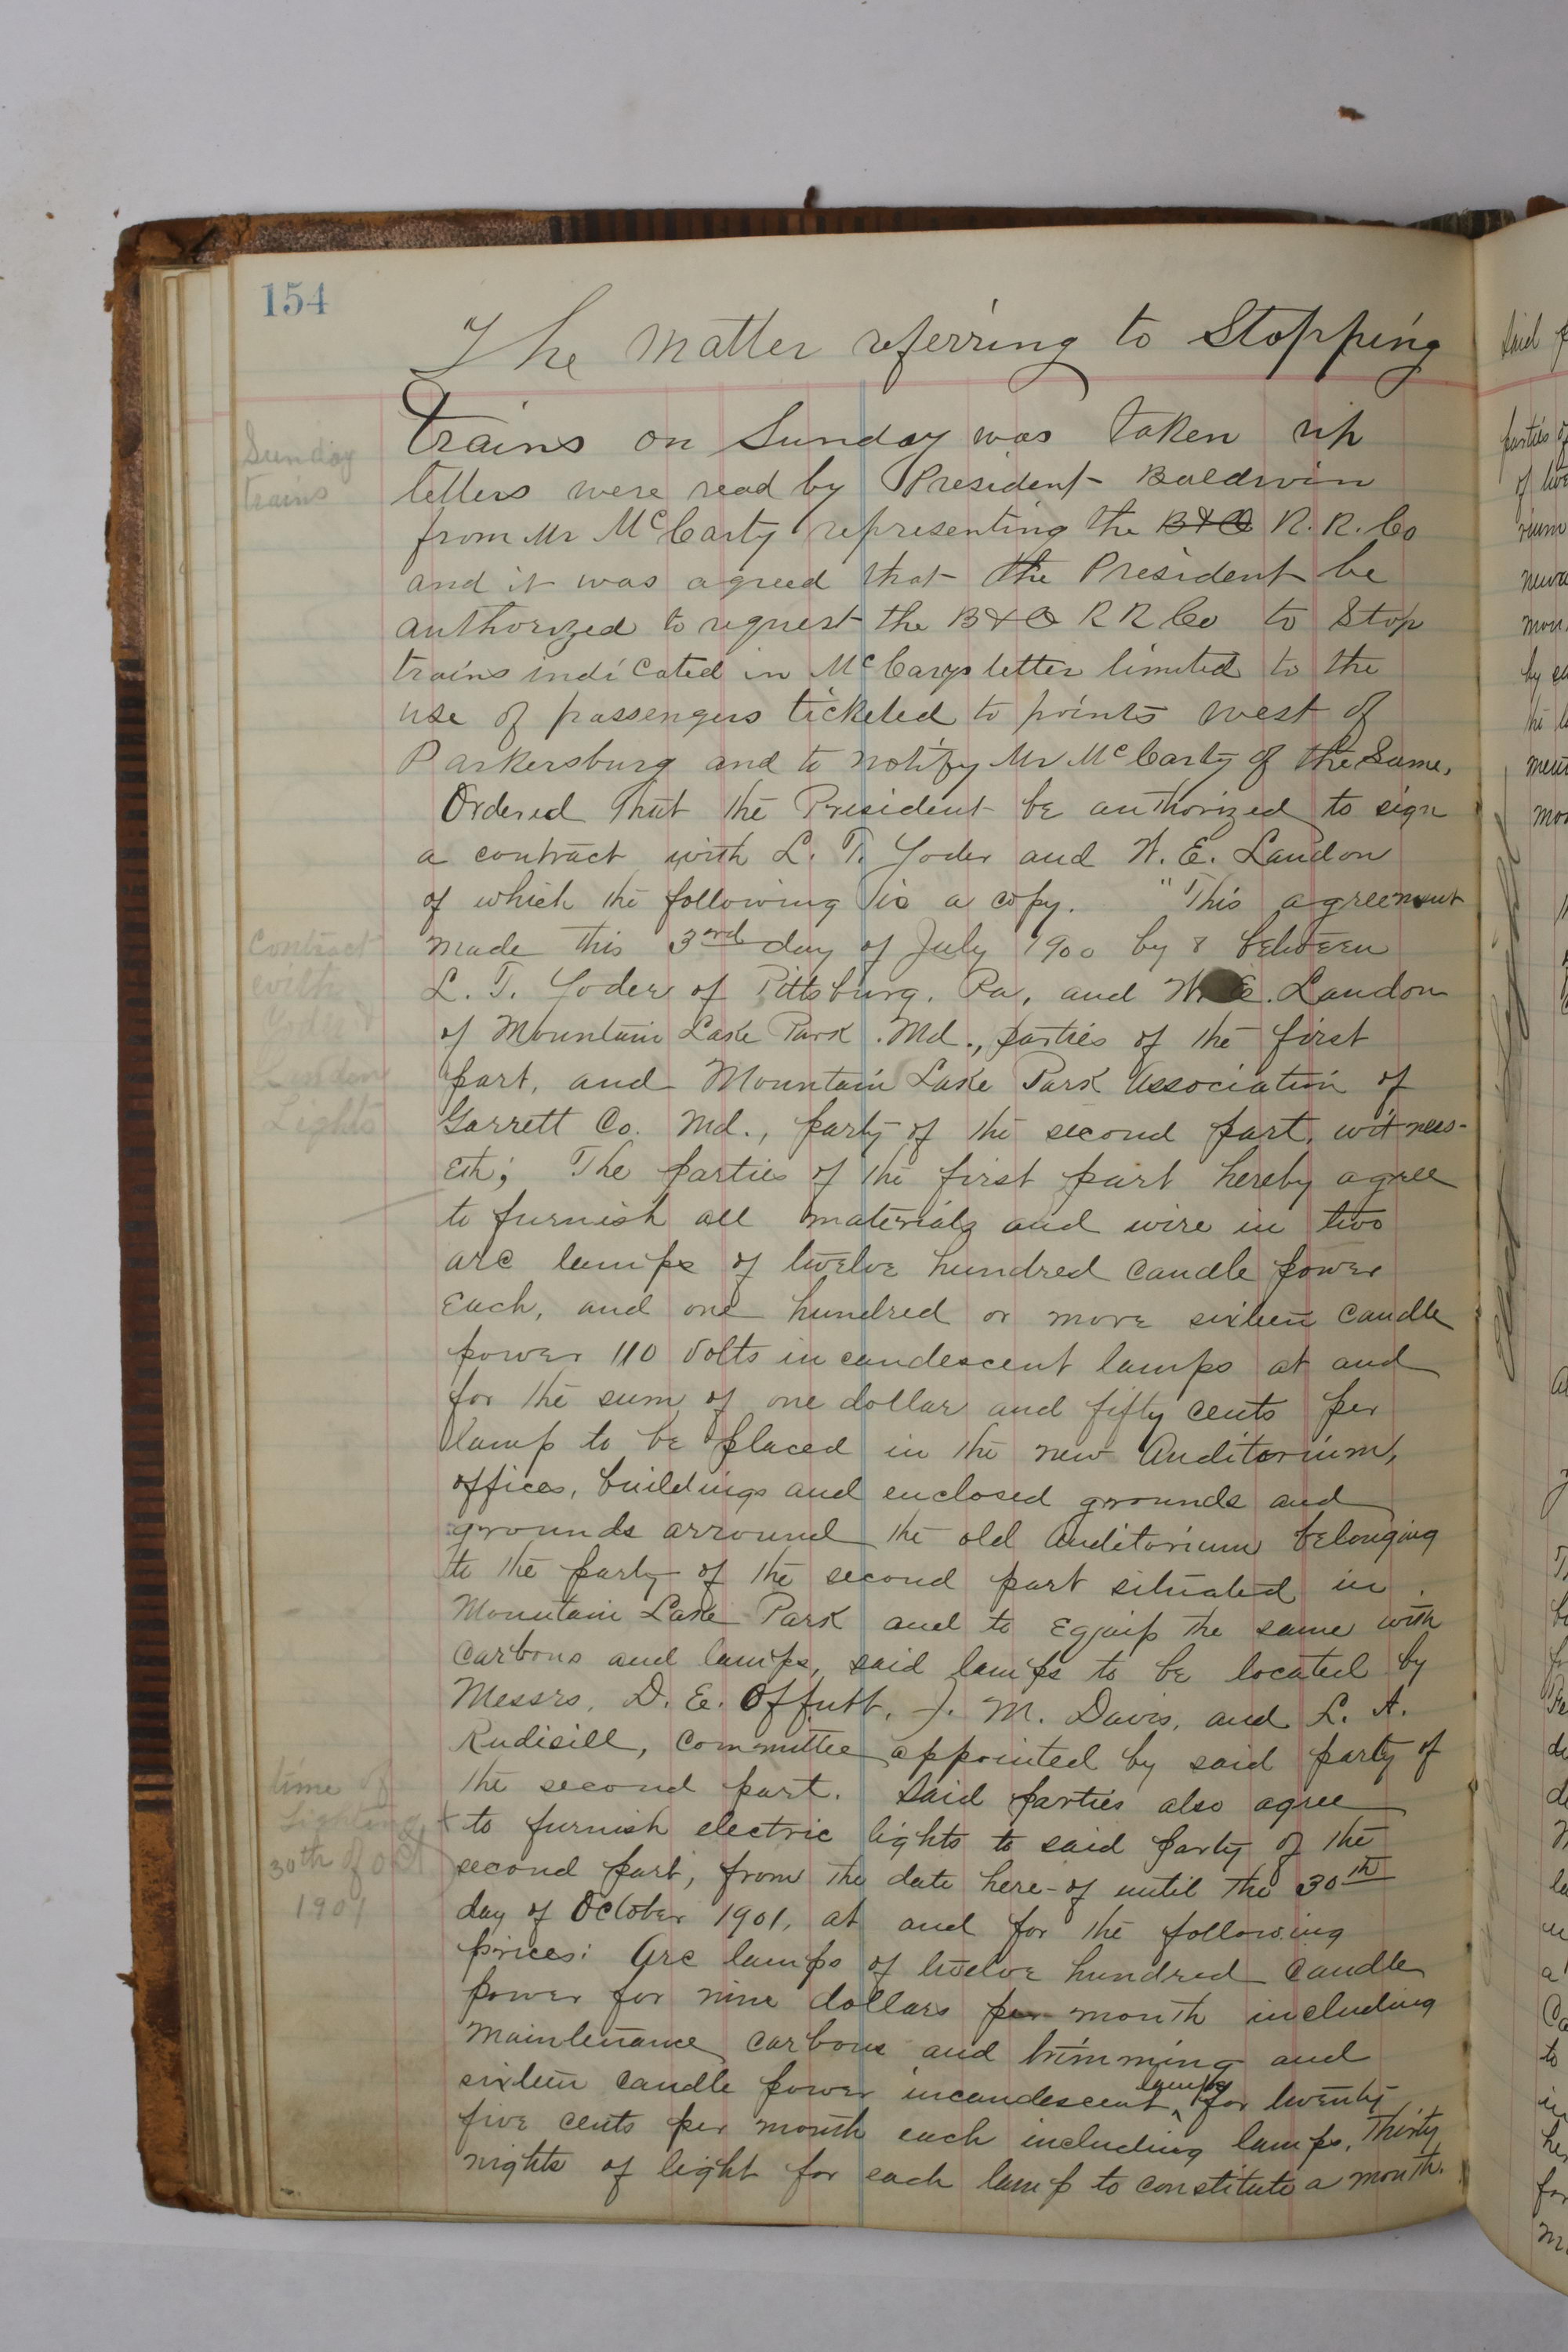 154
The matter referring to Stopping
Sunday
trains
Trains on Sunday was taken up
letters were read by President Baldwin
from Mr McCarty representing the B&O R.R. Co
and it was agreed that the President be
authorized to request the B&O R R Co to Stop
trains indicated in McCarys letter limited to the
use of passengers ticketed to points west of
Parkersburg and to notify Mr McCarty of the Same.
Ordered that the President be authorized to sign
a contract with L. T. Yoder and W. E. Landon
of which the following is a copy. "This agreement
contract
with
Yoder &
Landon
Lights
made this 3rd day of July 1900 by & between
L. T. Yoder of Pittsburg, Pa, and W. E. Landon
of Mountain Lake Park. Md., parties of the first
part, and Mountain Lake Park Association of
Garrett Co. Md., party of the second part, witness-
eth; The parties of the first part hereby agree
to furnish all materials and wire in two
arc lamps of twelve hundred candle power
Each, and one hundred or more sixteen candle
power 110 volts incandescent lamps at and
for the sum of one dollar and fifty cents per
lamp to be placed in the new Auditorium,
offices, buildings and enclosed grounds and
grounds arround the old Auditorium belonging
to the party of the second part situated in
Mountain Lake Park and to Eqquip the same with
carbons and lamps, said lamps to be located by
Messrs. D. E. Offutt, J. M. Davis, and L. A.
Rudisill, committee appointed by said party of
the second part. Said parties also agree
time of
Lighting
30th of oct
1901
+ to furnish electric lights to said party of the
second part, from the date here-of until the 30th
day of October 1901, at and for the following
prices: Arc lamps of twelve hundred candle
power for nine dollars per month including
maintenance carbons and trimming and
sixteen candle power incandescent lamps for twenty
five cents per month each including lamps. Thirty
nights of light for each lamp to constitute a month.